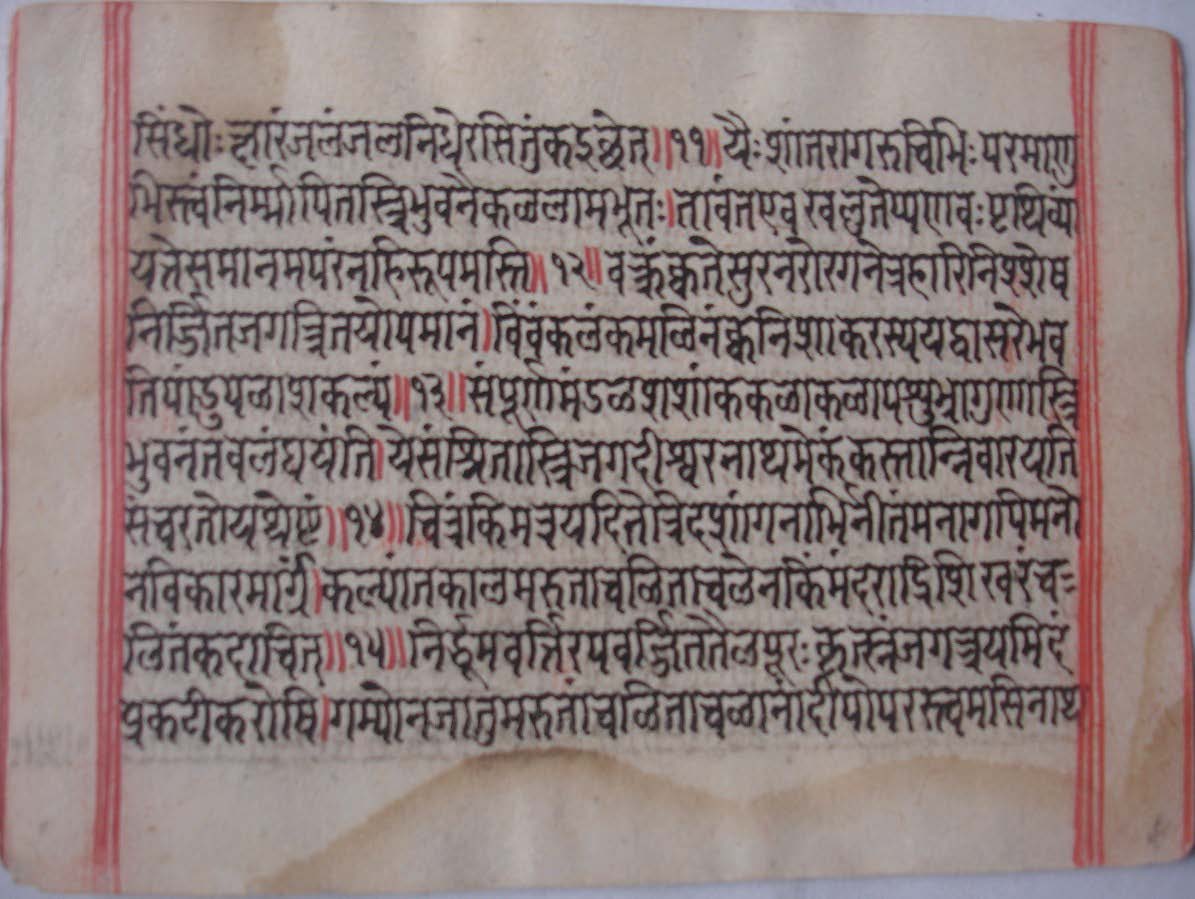 सिंधोः क्षारंजलंजलनिधेरसितुंकइछेत् ॥११॥ यैः शांतरागरुचिभिः परमाणु
भिस्त्वंनिर्म्मापितस्त्रिभुवनैकळलामभूतः। तावंतएव खलुतेप्यणवः पृथिव्यां
यत्तेसमानमपरंनहिरूपमस्ति॥१२॥ वक्त्रंक्वतेसुरनरोरगनेत्रहारिनिश्शेष
निर्ज्जितजगत्त्रितयोपमानं। विंवंकलंकमळिनंक्वनिशाकरस्ययद्वासरेभव
तिपांडुपळाशकल्पं॥१३॥ संपूर्णमंडळशशांककळाकळापशुभ्रागुणास्त्रि
भुवनंतवलंघयंति। येसंश्रितास्त्रिजगदीश्वरनाथमेकंकस्तान्निवारयति
संचरतोयथेष्टं॥१४॥ चित्रंकिमत्रयदितेत्रिदशांगनाभिर्नीतंमनागपिमनो
नविकारमार्गं। कल्पांतकालमरुताचळिताचलेनकिंमंदराद्रिशिखरंच
लितंकदाचित्॥१५॥ निर्द्धूमवर्त्तिरपवर्ज्जिततैलपूरः कृत्स्नंजगत्त्रयमिदं
प्रकटीकरोषि। गम्योनजातुमरुतांचळिताचळानांदीपोपरस्त्वमसिनाथ